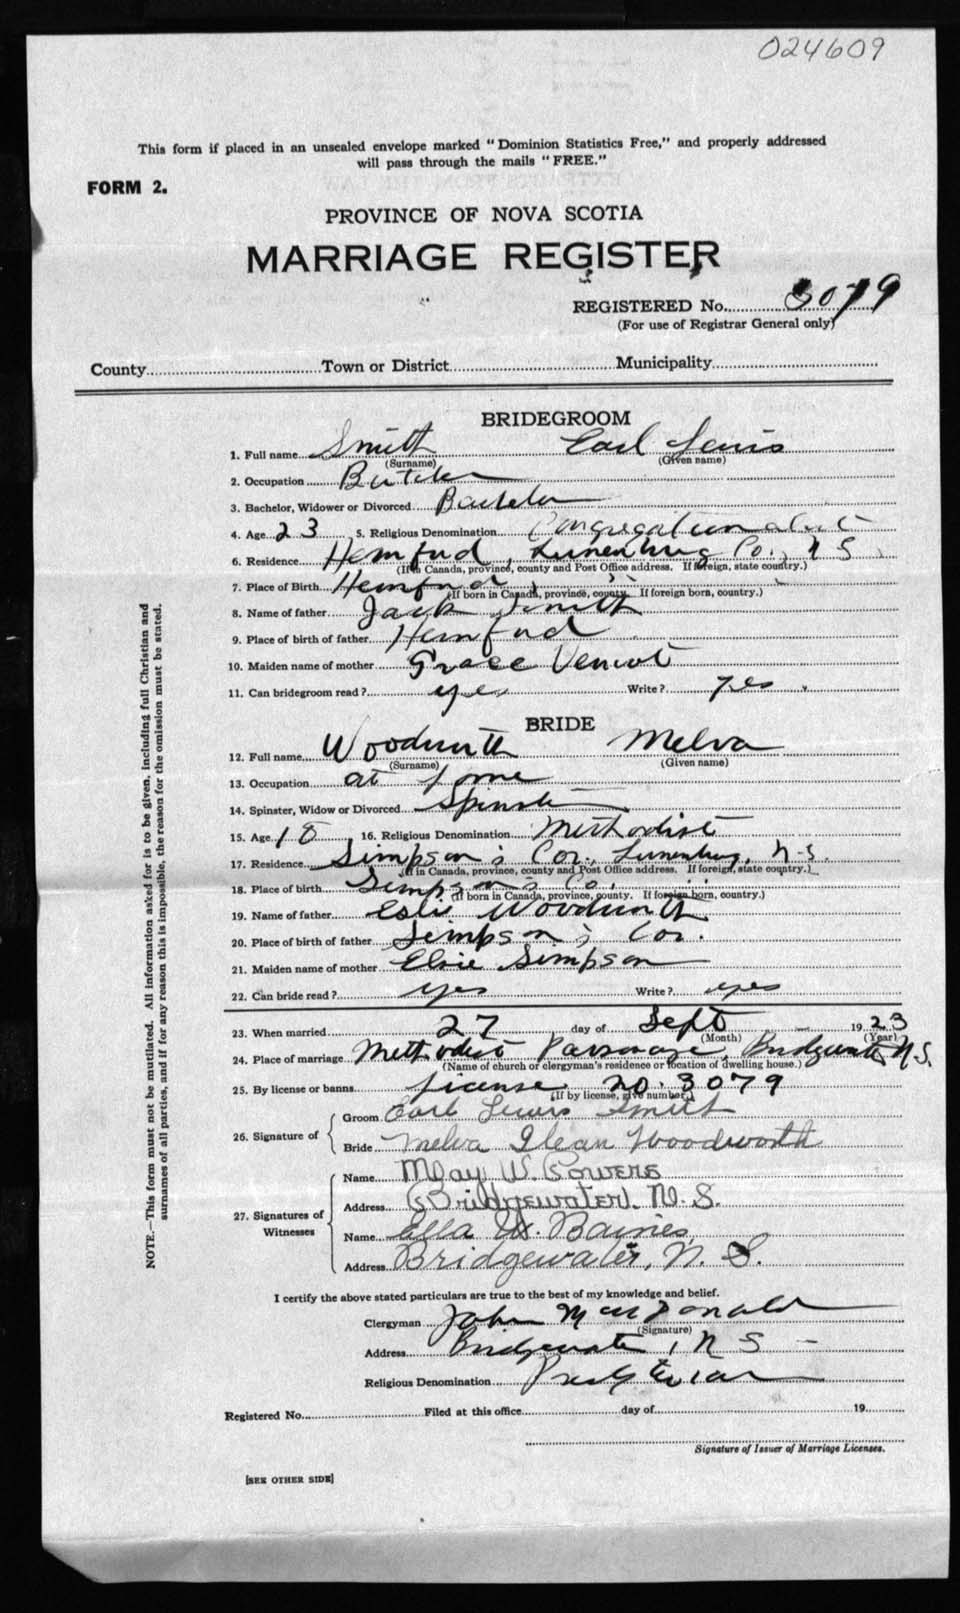 024609
This form if placed in an unsealed envelope marked "Dominion Statistics Free," and properly addressed
will pass through the mails "FREE."
FORM 2.
PROVINCE OF NOVA SCOTIA
MARRIAGE REGISTER
REGISTERED No. 3079
(For use of Registrar General only)
County Town or District Municipality
BRIDEGROOM
1. Full name Smith Earl Lewis
(Surname) (Given name)
2. Occupation Butcher
3. Bachelor, Widower or Divorced Bachelor
4. Age 23 5. Religious Denomination Congregationalist
6. Residence Hemford, Lunenburg Co., N S
(If in Canada, province, county and Post Office address. If foreign, state country.)
7. Place of Birth Hemford , " "
(If born in Canada, province, county. If foreign born, country.)
8. Name of father Jack Smith
9. Place of birth of father Hemford
10. Maiden name of mother Grace Veniot
11. Can bridegroom read? yes Write? yes
BRIDE
12. Full name Woodworth Melva
(Surname) (Given name)
13. Occupation at home
14. Spinster, Widow or Divorced Spinster
15. Age 18 16. Religious Denomination Methodist
17. Residence Simpson's Cor., Lunenburg, N.S.
(If in Canada, province, county and Post Office address. If foreign, state country.)
18. Place of birth Simpson's Co.
(If born in Canada, province, county. If foreign born, country.)
19. Name of father Woodworth
20. Place of birth of father Simpson's Cor.
21. Maiden name of mother Elsie Simpson
22. Can bride read? yes Write? yes
23. When married 27 day of Sept 1923
(Month) (Year)
24. Place of marriage Methodist Parsonage, Bridgewater, N.S.
(Name of church or clergyman's residence or location of dwelling house.)
25. By license or banns License no. 3079
(If by license, give number)
26. Signature of
Groom Earl Lewis Smith
Bride Melva Ilean Woodworth
27. Signatures of Witnesses
Name May W. Bowers
Address Bridgewater, N.S.
Name Ella W. Barnes
Address Bridgewater, N. S.
I certify the above stated particulars are true to the best of my knowledge and belief.
Clergyman John MacDonald
(Signature)
Address Bridgewater, N S
Religious Denomination Presbyterian
Registered No. Filed at this office day of 19
Signature of Issuer of Marriage Licenses.
[SEE OTHER SIDE]
NOTE.—This form must not be mutilated. All information asked for is to be given, including full Christian and
surnames of all parties, and if for any reason this is impossible, the reason for the omission must be stated.